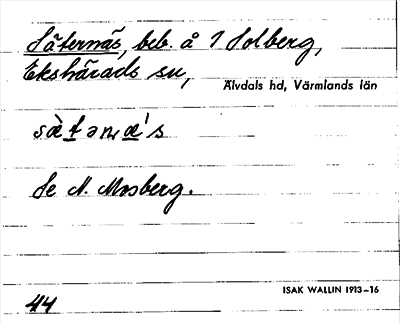 Säternäs, beb. å 1 Solberg,
Ekshärads sn,
Älvdals hd, Värmlands län
Se N. Mosberg.
ISAK WALLIN 1913–16
44